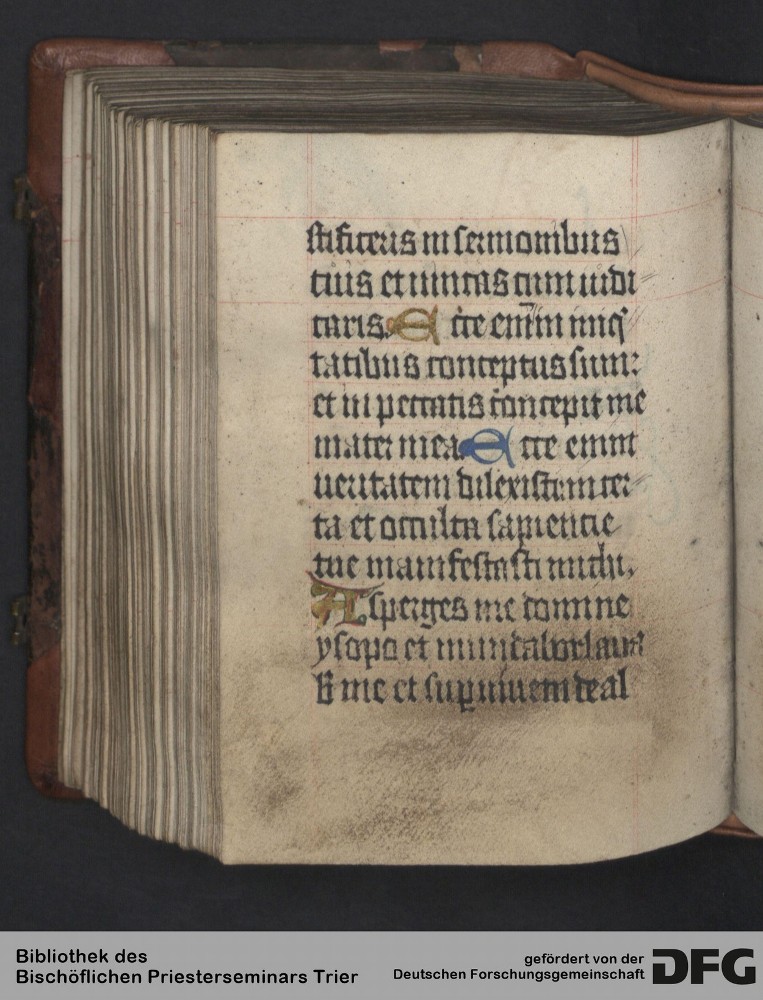 stificeris in sermonibus
tuis et vincas cum iudi
caris. Ecce enim iniq̓
tatibus conceptus sum:
et in peccatis concepit me
mater mea. Ecce enim
veritatem dilexisti incer
ta et occulta sapientie
tue manifestasti michi.
Asperges me domine
ysopo et mundabor laua
b̅ me et sup̱ niuem deal
Bibliothek des
Bischöflichen Priesterseminars Trier
gefördert von der
Deutschen Forschungsgemeinschaft
DFG